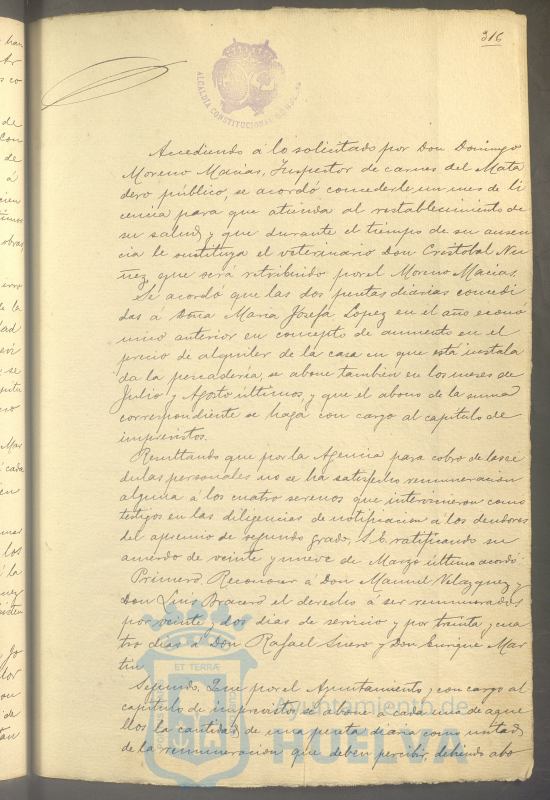 316
ALCALDIA CONSTITUCIONAL
Accediendo á lo solicitado por Don Domingo
Moreno Macias, Inspector de carnes del Mata
dero público, se acordó concederle un mes de li
cencia para que atienda al restablecimiento de
su salud, y que durante el tiempo de su ausen
cia le sustituya el veterinario Don Cristobal Nu
ñez, que será retribuido por el Moreno Macias.
Se acordó que las dos pesetas diarias concedi
das á Doña Maria Josefa Lopez en el año econó
mico anterior en concepto de aumento en el
precio de alquiler de la casa en que está instala
da la pescadería, se abone tambien en los meses de
Julio y Agosto últimos, y que el abono de la suma
correspondiente se haga con cargo al capítulo de
imprevistos.
Resultando que por la Agencia para cobro de las cé
dulas personales no se ha satisfecho remuneracion
alguna á los cuatro serenos que intervinieron como
testigos en las diligencias de notificacion á los deudores
del apremio de segundo grado, S.E. ratificando su
acuerdo de veinte y nueve de Marzo último acordó:
Primero. Reconocer á Don Manuel Velazquez y
Don Luis Bracero el derecho á ser remunerados
por veinte y dos dias de servicio y por treinta y cua
tro dias á Don Rafael Suero y Don Enrique Mar
tin
Segundo. Que por el Ayuntamiento y con cargo al
capítulo de imprevistos, se abone á cada uno de aque
llos la cantidad de una peseta diaria como mitad
de la remuneracion que deben percibir, debiendo abo
ET TERRÆ
Ayuntamiento de
HUELVA